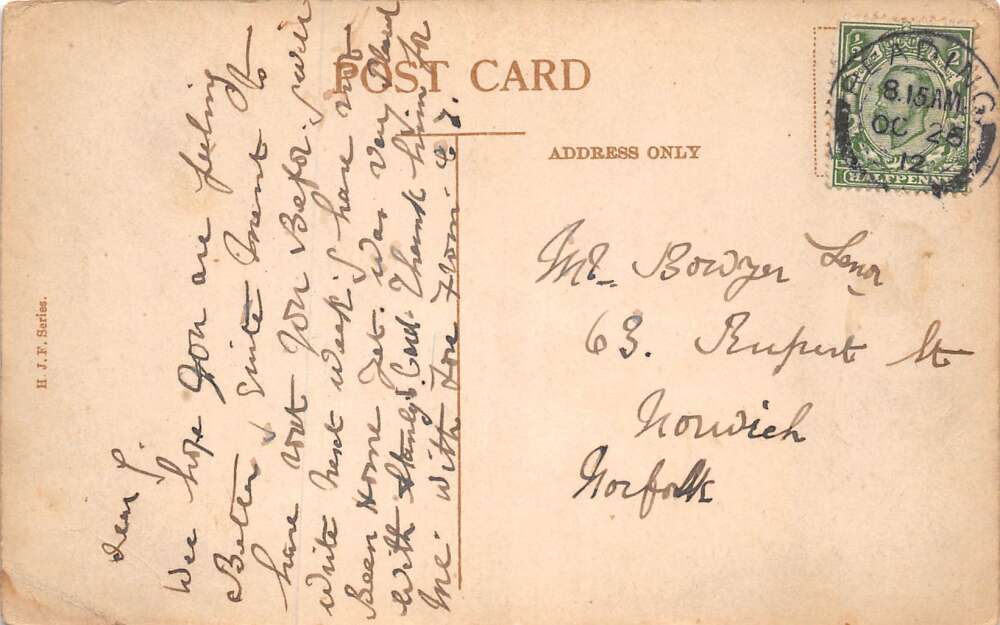 POST CARD
ADDRESS ONLY
H. J. F. Series.
½ ½
HALFPENNY
8.15AM
OC 25
12
Dear F.
We hope you are feeling
Better & Quite ment to
have rout you Befor. will
write next week I have not
Been Home yet. was very Pleased
with Stanleys Card. Thank him for
me. with Love From C J.
Mr Bowyer Senr
63. Rupert St
Norwich
Norfolk